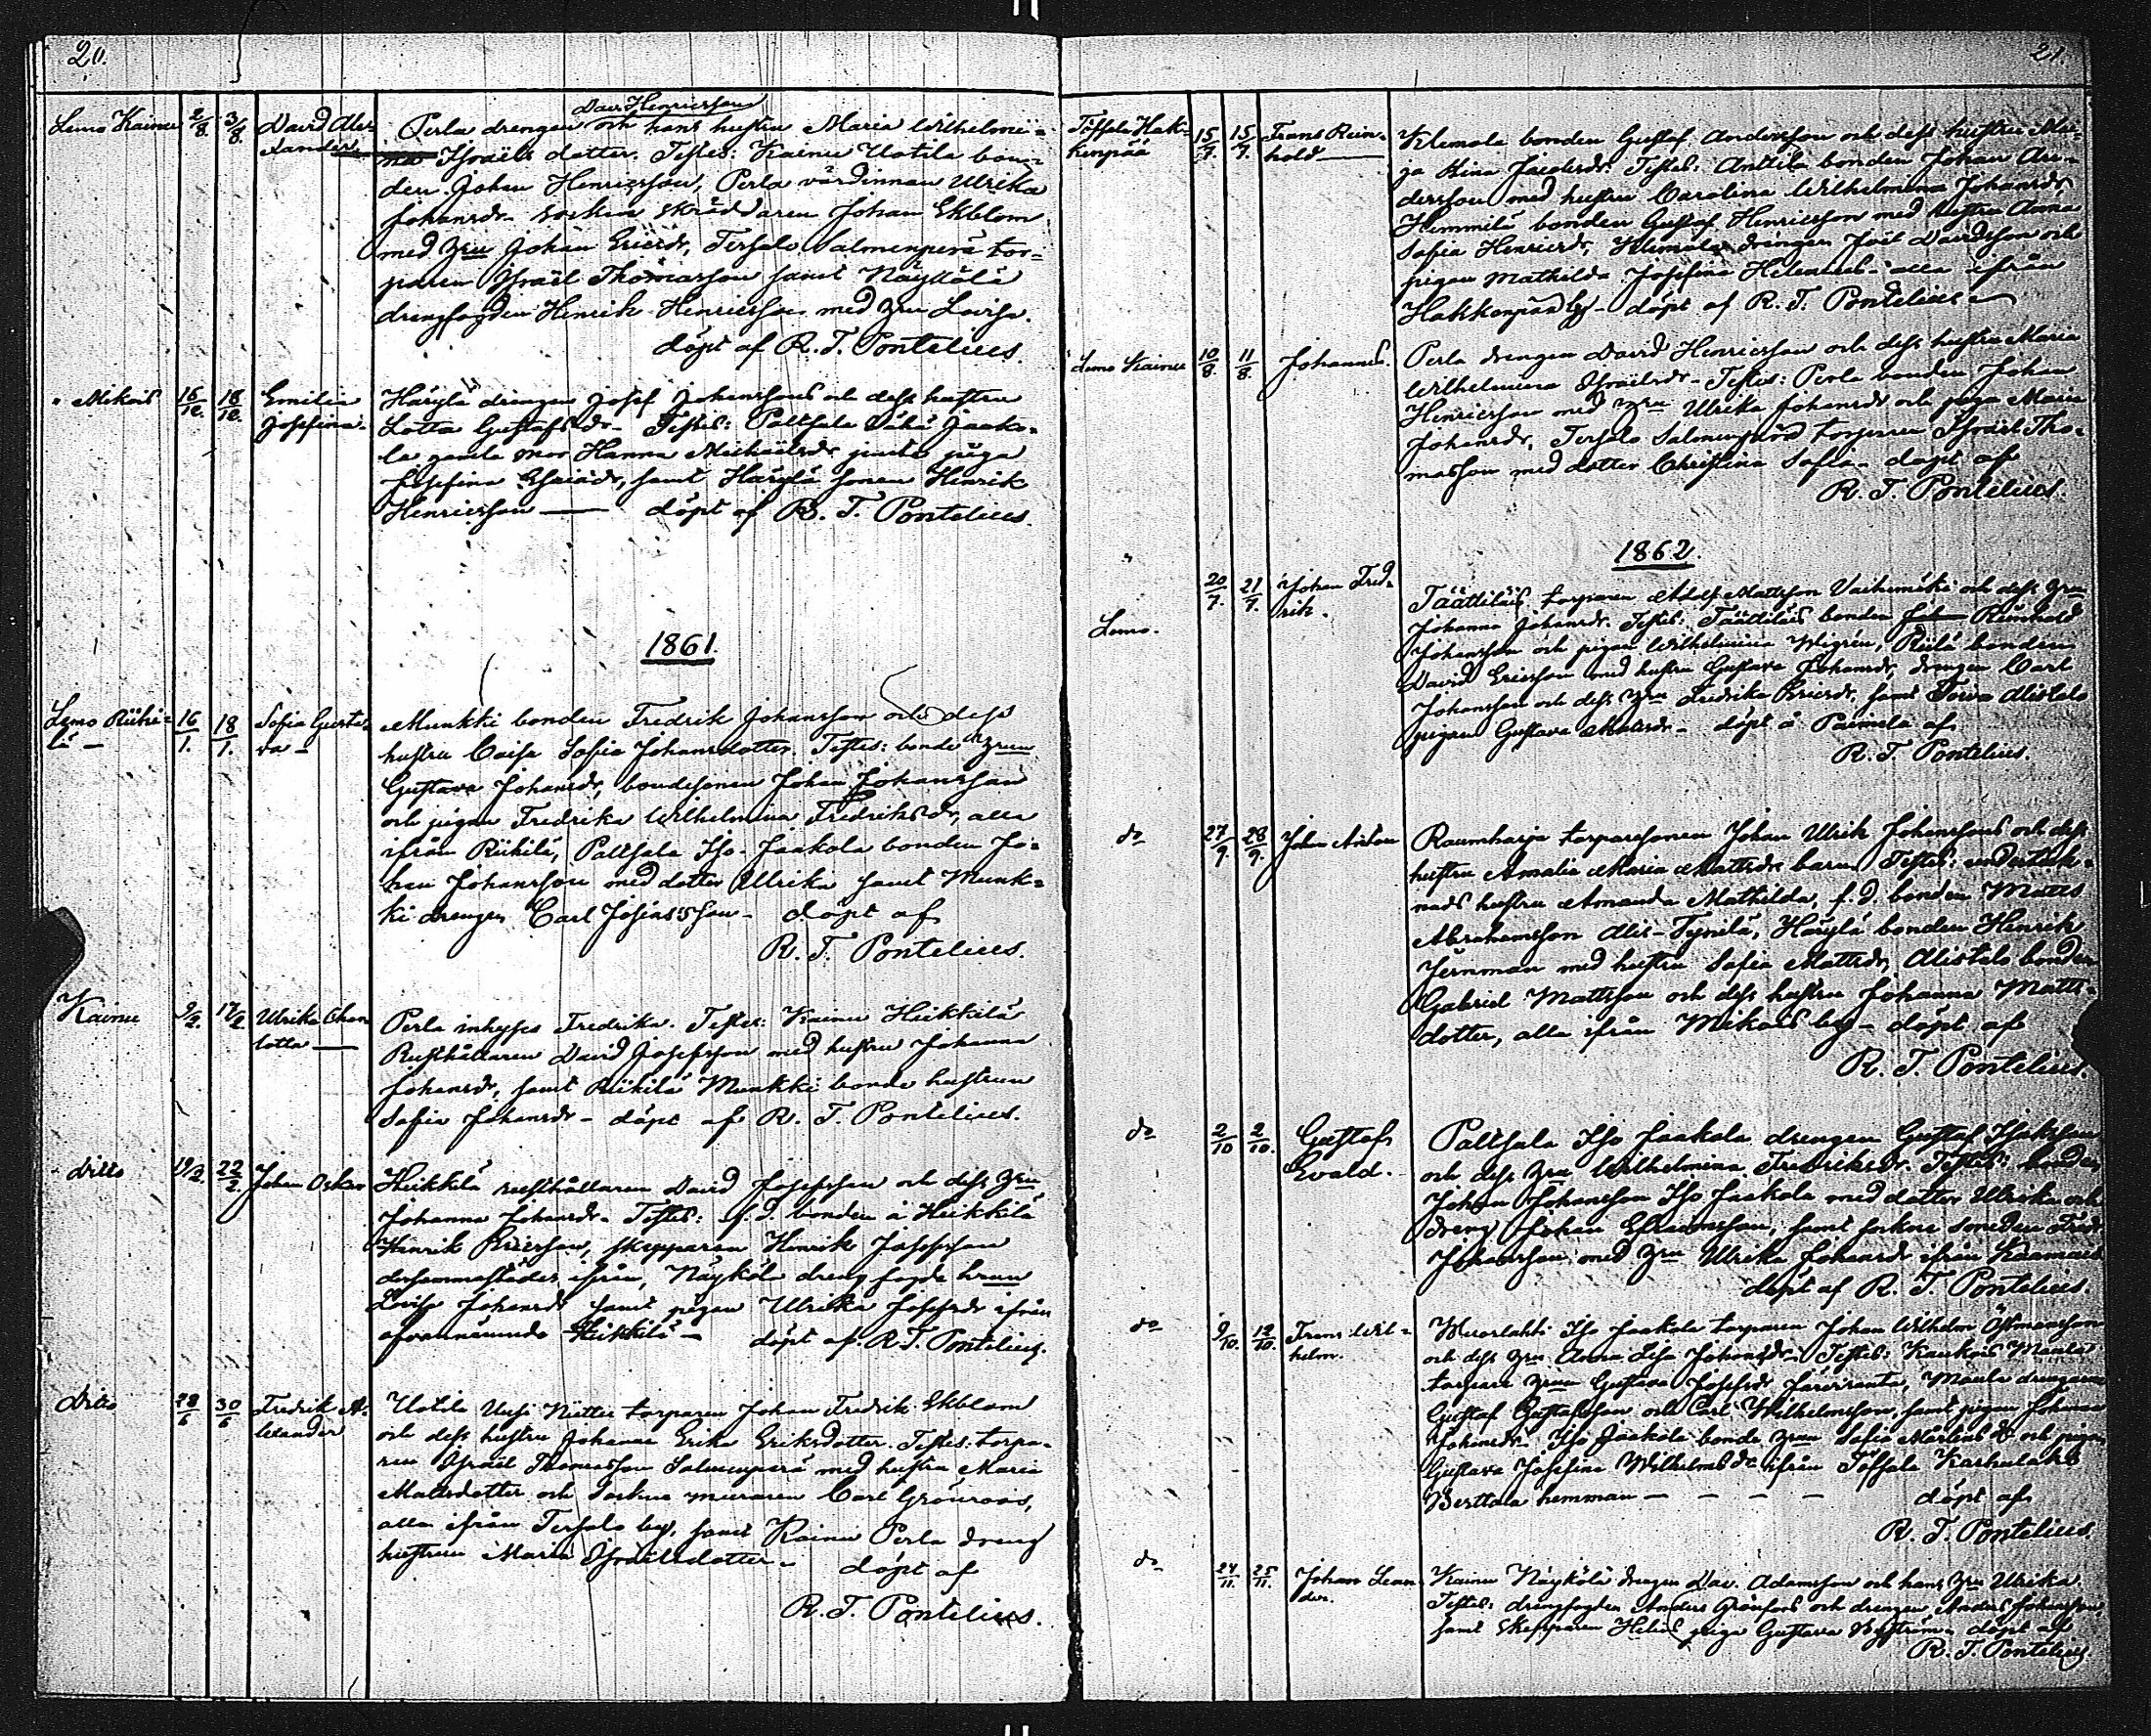 20.
Lemo Kainu 2/8. 3/8. David Alex- Perla drengen Dav. Henricsson och hans hustru Maria Wilhelmi-
ander na Israëls dotter. Testes: Kainu Uotila bon-
den Johan Henricsson, Perla värdinnan Ulrika
Johansdr. Sockne skräddaren Johan Ekblom
med hru Johan Ericsdr, Tersalo Salmenperä tor-
paren Israël Thomasson samt Näykölä
drengfogden Henrik Henricsson med hru Lovisa.
döpt af R. T. Pontelius.
" Mikois 16/12. 18/12. Emilia Härylä drengen Josef Johanssons och dess hustru
Josefina Lotta Gustafsdr. Testes: Paltsala Vähä Jaako-
la gamla mor Hanna Michaëlsdr jemte piga
Josefina Esaiædr, samt Härylä sonen Henrik
Henricsson — döpt af R. T. Pontelius.
1861.
Lemo Riiki- 16/1. 18/1. Sofia Gusta- Munkki bonden Fredrik Johansson och dess
lä — va — hustru Caisa Sofia Johansdotter. Testes: bonde hrun
Gustava Johansdr, bondesonen Johan Johansson
och pigan Fredrika Wilhelmina Fredriksdr, alla
ifrån Riikilä, Paltsala Iso-Jaakola bonden Jo-
han Johansson med dotter Ulrika samt Munk-
ki drengen Carl Josiasson - döpt af
R. T. Pontelius.
Kainu 9/2. 17/2. Ulrika Char- Perla inhyses Fredrika. Testes: Kainu Heikkilä
lotta — Rusthållaren David Josefsson med hustru Johanna
Johansdr, samt Riikilä Munkki bonde hustrun
Sofia Johansdr - döpt af R. T. Pontelius.
ditto 19/2. 22/2. Johan Oskar Heikkilä rusthållaren David Josefsson och dess hru
Johanna Johansdr. Testes: f.d. bonden å Heikkilä
Henrik Ericsson, skepparen Henrik Josefsson
dersammastädes ifrån, Näykölä dreng fogde hrun
Lovisa Johansdr samt pigan Ulrika Josefsdr ifrån
ofvannämnde Heikkilä — döpt af R. T. Pontelius.
Ditto 28/6 30/6 Fredrik A- Uotila Uusi Niittu torparen Johan Fredrik Ekblom
lexander och dess hustru Johanna Erika Eriksdotter. Testes: torpa-
ren Israël Thomasson Salmenperä med hustru Maria
Mattsdotter och Sockne muraren Carl Grönroos,
alla ifrån Tersalo by, samt Kainu Perla dreng
hustrun Maria Israëlsdotter - döpt af
R. T. Pontelius.
21.
Töffsala Hak- 15/7. 15/7. Frans Rein- Klemola bonden Gustaf Andersson och dess hustru Ma-
kenpää hold — ja Stina Jacobsdr. Testes: Anttila bonden Johan An-
dersson med hustru Carolina Wilhelmina Johansdr
Hemmilä bonden Gustaf Henricsson med hustru Anna
Sofia Henricsdr, Klemola drengen Joël Davidsson och
pigan Mathilda Josefina Helenius - alla ifrån
Hakkenpää by - döpt af R. T. Pontelius
Lemo Kainu 10/8. 11/8. Johannes. Perla drengen David Henricsson och dess hustru Maria
Wilhelmina Israëlsdr - Testes: Perla bonden Johan
Henricsson med hru Ulrika Johansdr och piga Maria
Johansdr, Tersalo Salmenperä torparen Israël Tho-
masson med dotter Christina Sofia - döpt af
R. T. Pontelius.
1862.
"
Lemo. 20/7. 21/7. Johan Fred- Täättiläis torparen Adolf Mattsson Vaihemäki och dess hru
rik. Johanna Johansdr. Testes: Täättiläis bonden Reinhold
Johansson och pigan Wilhelmina Wigren, Riilä bonden
David Ericsson med hustru Gustava Johansdr, drengen Carl
Johansson och dess hru Fredrika Ericsdr, samt Alistalo
pigan Gustava Mattsdr - döpt å af
R. T. Pontelius.
do 27/9. 28/9. Johan Anton Raumharja torparesonen Johan Ulrik Johanssons och dess
hustru Amalia Maria Mattsdr barn. Testes:
nads hustru Amanda Mathilda, f.d. bonden Matts
Abrahamsson Ali-Tynilä, Härylä bonden Henrik
Jernman med hustru Sofia Mattsdr, Alistalo bonden
Gabriel Mattsson och dess hustru Johanna Matts-
dotter, alla ifrån Mikois by - döpt af
R. T. Pontelius.
do 2/10 2/10. Gustaf Paltsala Iso Jaakola drengen Gustaf Isaksson
Evald. och dess hru Wilhelmina Fredriksdr. Testes: bonden
Johan Johansson Iso Jaakola med dotter Ulrika och
dreng Johan samt sockne smeden Fredr.
Johansson med hru Ulrika Johansdr ifrån
döpt af R. T. Pontelius.
do 9/10. 12/10. Frans Wil- Muorlahti Iso Jaakola torparen Johan Wilhelm Östmansson
helm. och dess hru Anna Lisa Johansdr. Testes: Kaukois Maula
torpare hrun Gustava Josefsdr Maula drengarne
Gustaf Gustafsson och Carl Wilhelmsson, samt pigan Johanna
Johansdr. Iso Jaakola bonde hrun Sofia Mårtensdr och pigan
Gustava Josefina Wilhelmsdr ifrån Töffsala Karhulaks
Berttala hemman — — — — döpt af
R. T. Pontelius.
do 24/11. 25/11. Johan Lean- Kainu Näykölä drengen Dav. Adamsson och hans hru Ulrika.
der. Testes: drengfogden Anders Grönfors och drengen Anders Johansson,
samt Skepparen Helins piga Gustava Byström - döpt af
R. T. Pontelius